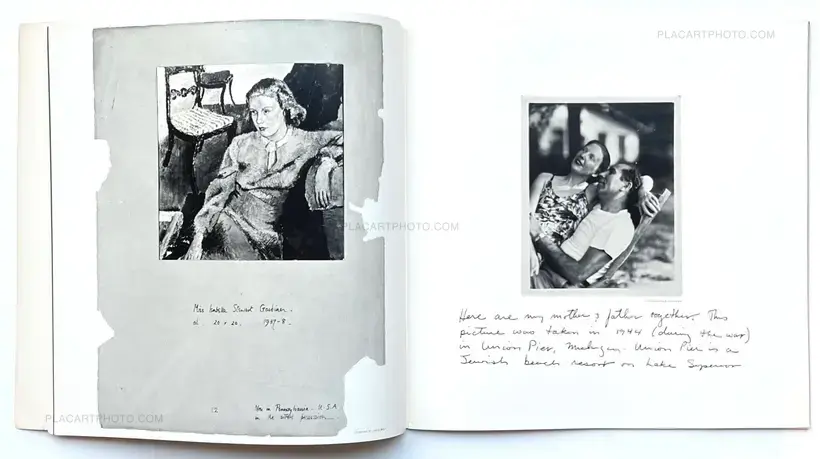 PLACARTPHOTO.COM
Miss Isabella Stewart Gardiner.
oil. 20 x 24. 1937-8-
12
Now in Pennsylvania - U.S.A.
in the possession
PLACARTPHOTO.COM
PLACARTPHOTO.COM
Here are my mother & father together. This
picture was taken in 1944 (during the war)
in Union Pier, Michigan - Union Pier is a
Jewish beach resort on Lake Superior